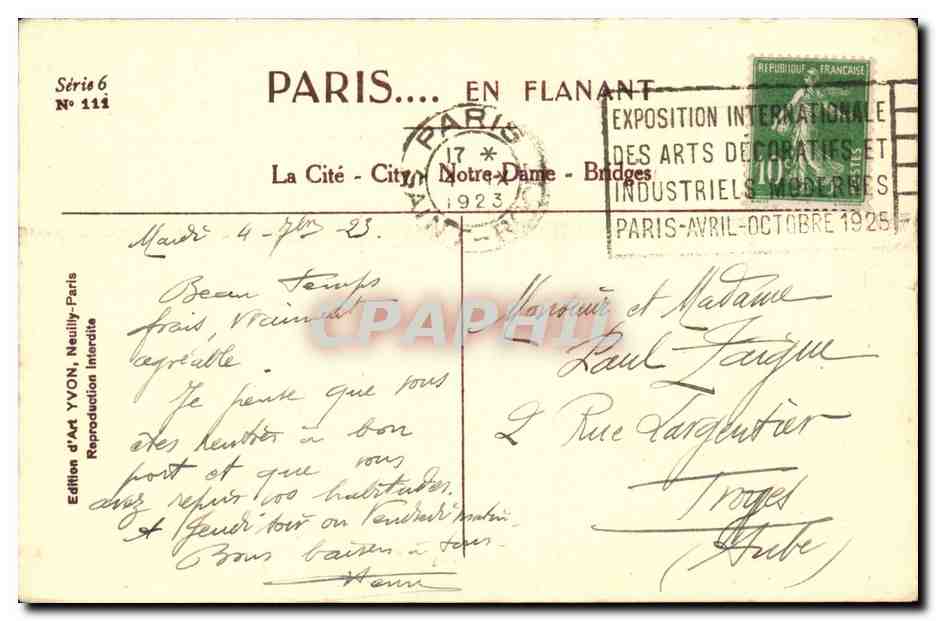 Série 6
N° 111
PARIS.... EN FLANANT
La Cité - City - Notre-Dame - Bridges
PARIS
17 *
1923
REPUBLIQUE FRANÇAISE
10
POSTES
EXPOSITION INTERNATIONALE
DES ARTS DECORATIFS ET
INDUSTRIELS MODERNES
PARIS-AVRIL-OCTOBRE 1925
Edition d'Art YVON, Neuilly-Paris
Reproduction Interdite
Mardi 4 - 7bre 23.
Beau Temps
frais, vraiment
agréable.
Je pense que vous
êtes rentrés à bon
port et que vous
avez repris vos habitudes.
A Jeudi soir ou Vendredi matin.
Bons baisers à tous
Monsieur et Madame
Paul Faigue
2 Rue Largentier
Troyes
(Aube)
CPAPHIL